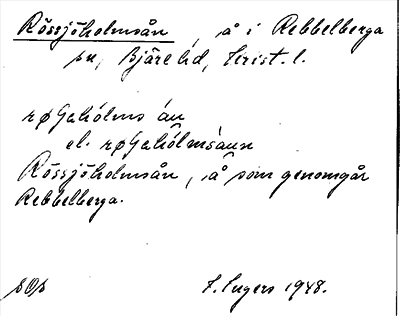 Rössjöholmsån, å i Rebbelberga
sn, Bjäre hd, Krist. l.
røʃahólms án
el. røʃahólmsáun
Rössjöholmsån, å som genomgår
Rebbelberga.
sOs F. Ingers 1948.